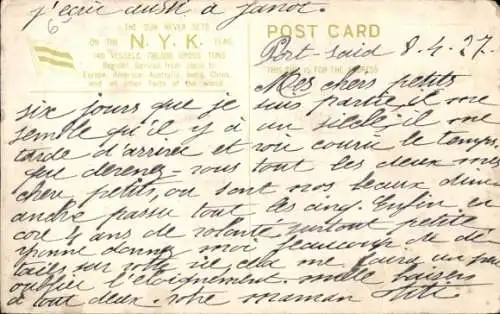 j'écris aussi à Janot.
THE SUN NEVER SETS
ON THE N.Y.K. FLAG
POST CARD
Port-said 8.4.27
THIS SIDE IS FOR THE ADDRESS
Regular Services from Japan to
Europe, America, Australia, India, China,
and all other Parts of the World.
Mes chers petits
six jours que je suis partie, il me
semble qu'il y a un siècle, il me
tarde d'arriver et voir courir le temps,
que devenez-vous tout les deux mes
chers petits, ou sont nos beaux dim
anche passer tout les cinq. Enfin en
core 4 ans de volonté surtout petite
Yvonne donnez moi beaucoup de dé
tails sur votre vie, cela me fera un peu
oublier l'éloignement. mille baisers
à tout deux. votre maman Titi